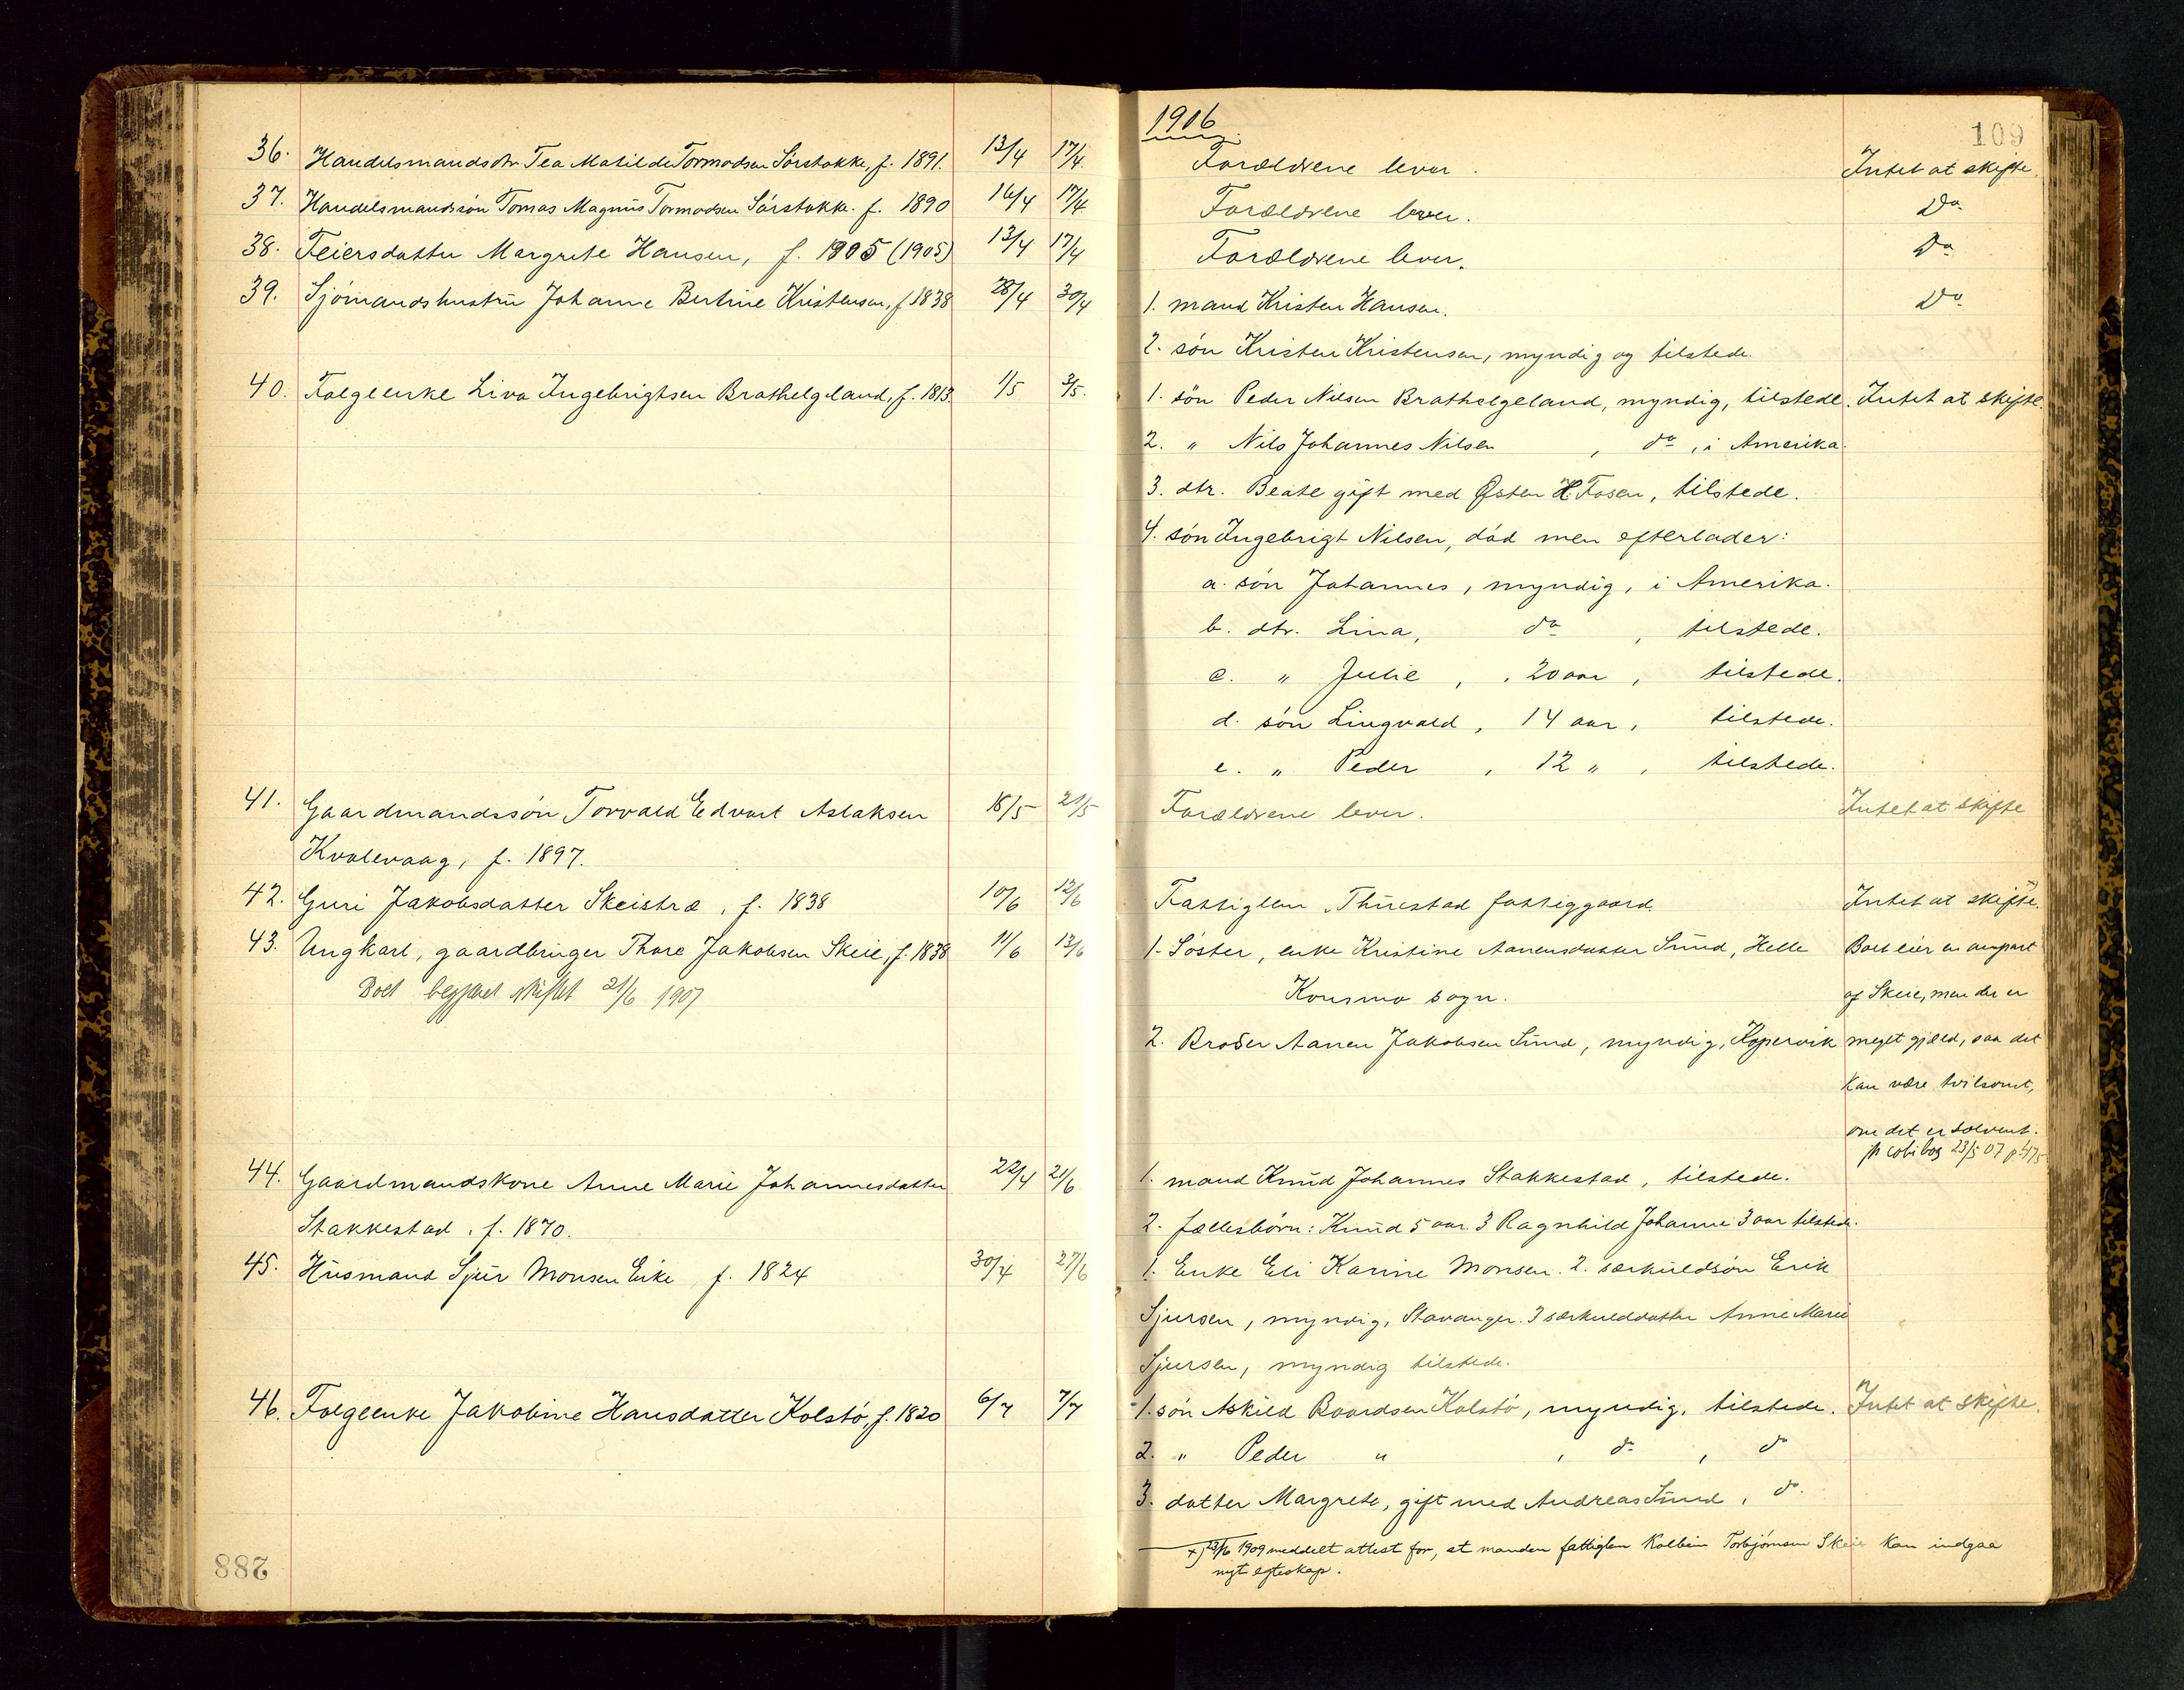 1906
109
36. Handelsmandsdtr Tea Matilde Tormodsen Sørstokke, f. 1891. 13/4 17/4. Forældrene lever. Intet at skifte.
37. Handelsmandssøn Tomas Magnus Tormodsen Sørstokke. f. 1890 16/4 17/4. Forældrene lever. Do
38. Feiersdatter Margrete Hansen, f. 1905 (1905) 13/4 17/4 Forældrene lever. Do
39. Sjømandshustru Johanne Bertine Kristensen, f 1838 28/4 30/4 1. mand Kristen Hansen. Do
2. søn Kristen Kristensen, myndig og tilstede.
40. Folgeenke Liva Ingebrigtsen Brathelgeland, f. 1813. 1/5 3/5. 1. søn Peder Nilsen Brathelgeland, myndig, tilstede. Intet at skifte.
2. " Nils Johannes Nilsen , do , i Amerika.
3. dtr. Beate gift med Østen H. Fosen, tilstede.
4. søn Ingebrigt Nilsen, død men efterlader:
a. søn Johannes, myndig, i Amerika.
b. dtr. Lina, do , tilstede.
c. " Julie , 20 aar , tilstede.
d. søn Lingvald , 14 aar , tilstede.
e. " Peder , 12 " , tilstede.
41. Gaardmandssøn Torvald Edvart Aslaksen 18/5 21/5 Forældrene lever. Intet at skifte
Kvalevaag, f. 1897.
42. Guri Jakobsdatter Skeistræ, f. 1838 10/6 12/6 Fattiglem, Thuestad fattiggaard. Intet at skifte.
43. Ungkarl, gaardbruger Thore Jakobsen Skeie, f. 1838 11/6 13/6 1. Søster, enke Kristine Aanensdatter Sund, Helle Boet eier en anpart
Boet begjært skiftet 21/6 1907 Konsmo sogn. af Skeie, men der er
2. Broder Aanen Jakobsen Sund, myndig, Kopervik meget gjæld, saa det
kan være tvilsomt,
om det er solvent.
23/5 07 p. 475
44. Gaardmandskone Anne Marie Johannesdatter 22/4 21/6 1. mand Knud Johannes Stakkestad, tilstede.
Stakkestad, f. 1870. 2. fællesbørn: Knud 5 aar. 3 Ragnhild Johanne 3 aar tilstede.
45. Husmand Sjur Monsen Eike f. 1824 30/4 27/6 1. Enke Eli Karine Monsen. 2. særkuldsøn Erik
Sjursen, myndig, Stavanger. 3 særkulddatter Anne Marie
Sjursen, myndig tilstede.
46. Folgeenke Jakobine Hansdatter Kolstø, f. 1820 6/7 7/7 1. søn Askild Baardsen Kolstø, myndig, tilstede. Intet at skifte.
2. " Peder " , do , do
3. datter Margrete, gift med Andreas Sund, do.
x) 1909 meddelt attest for, at manden fattiglem Kolbein Torbjørnsen Skeie kan indgaa
nyt egteskap.
288